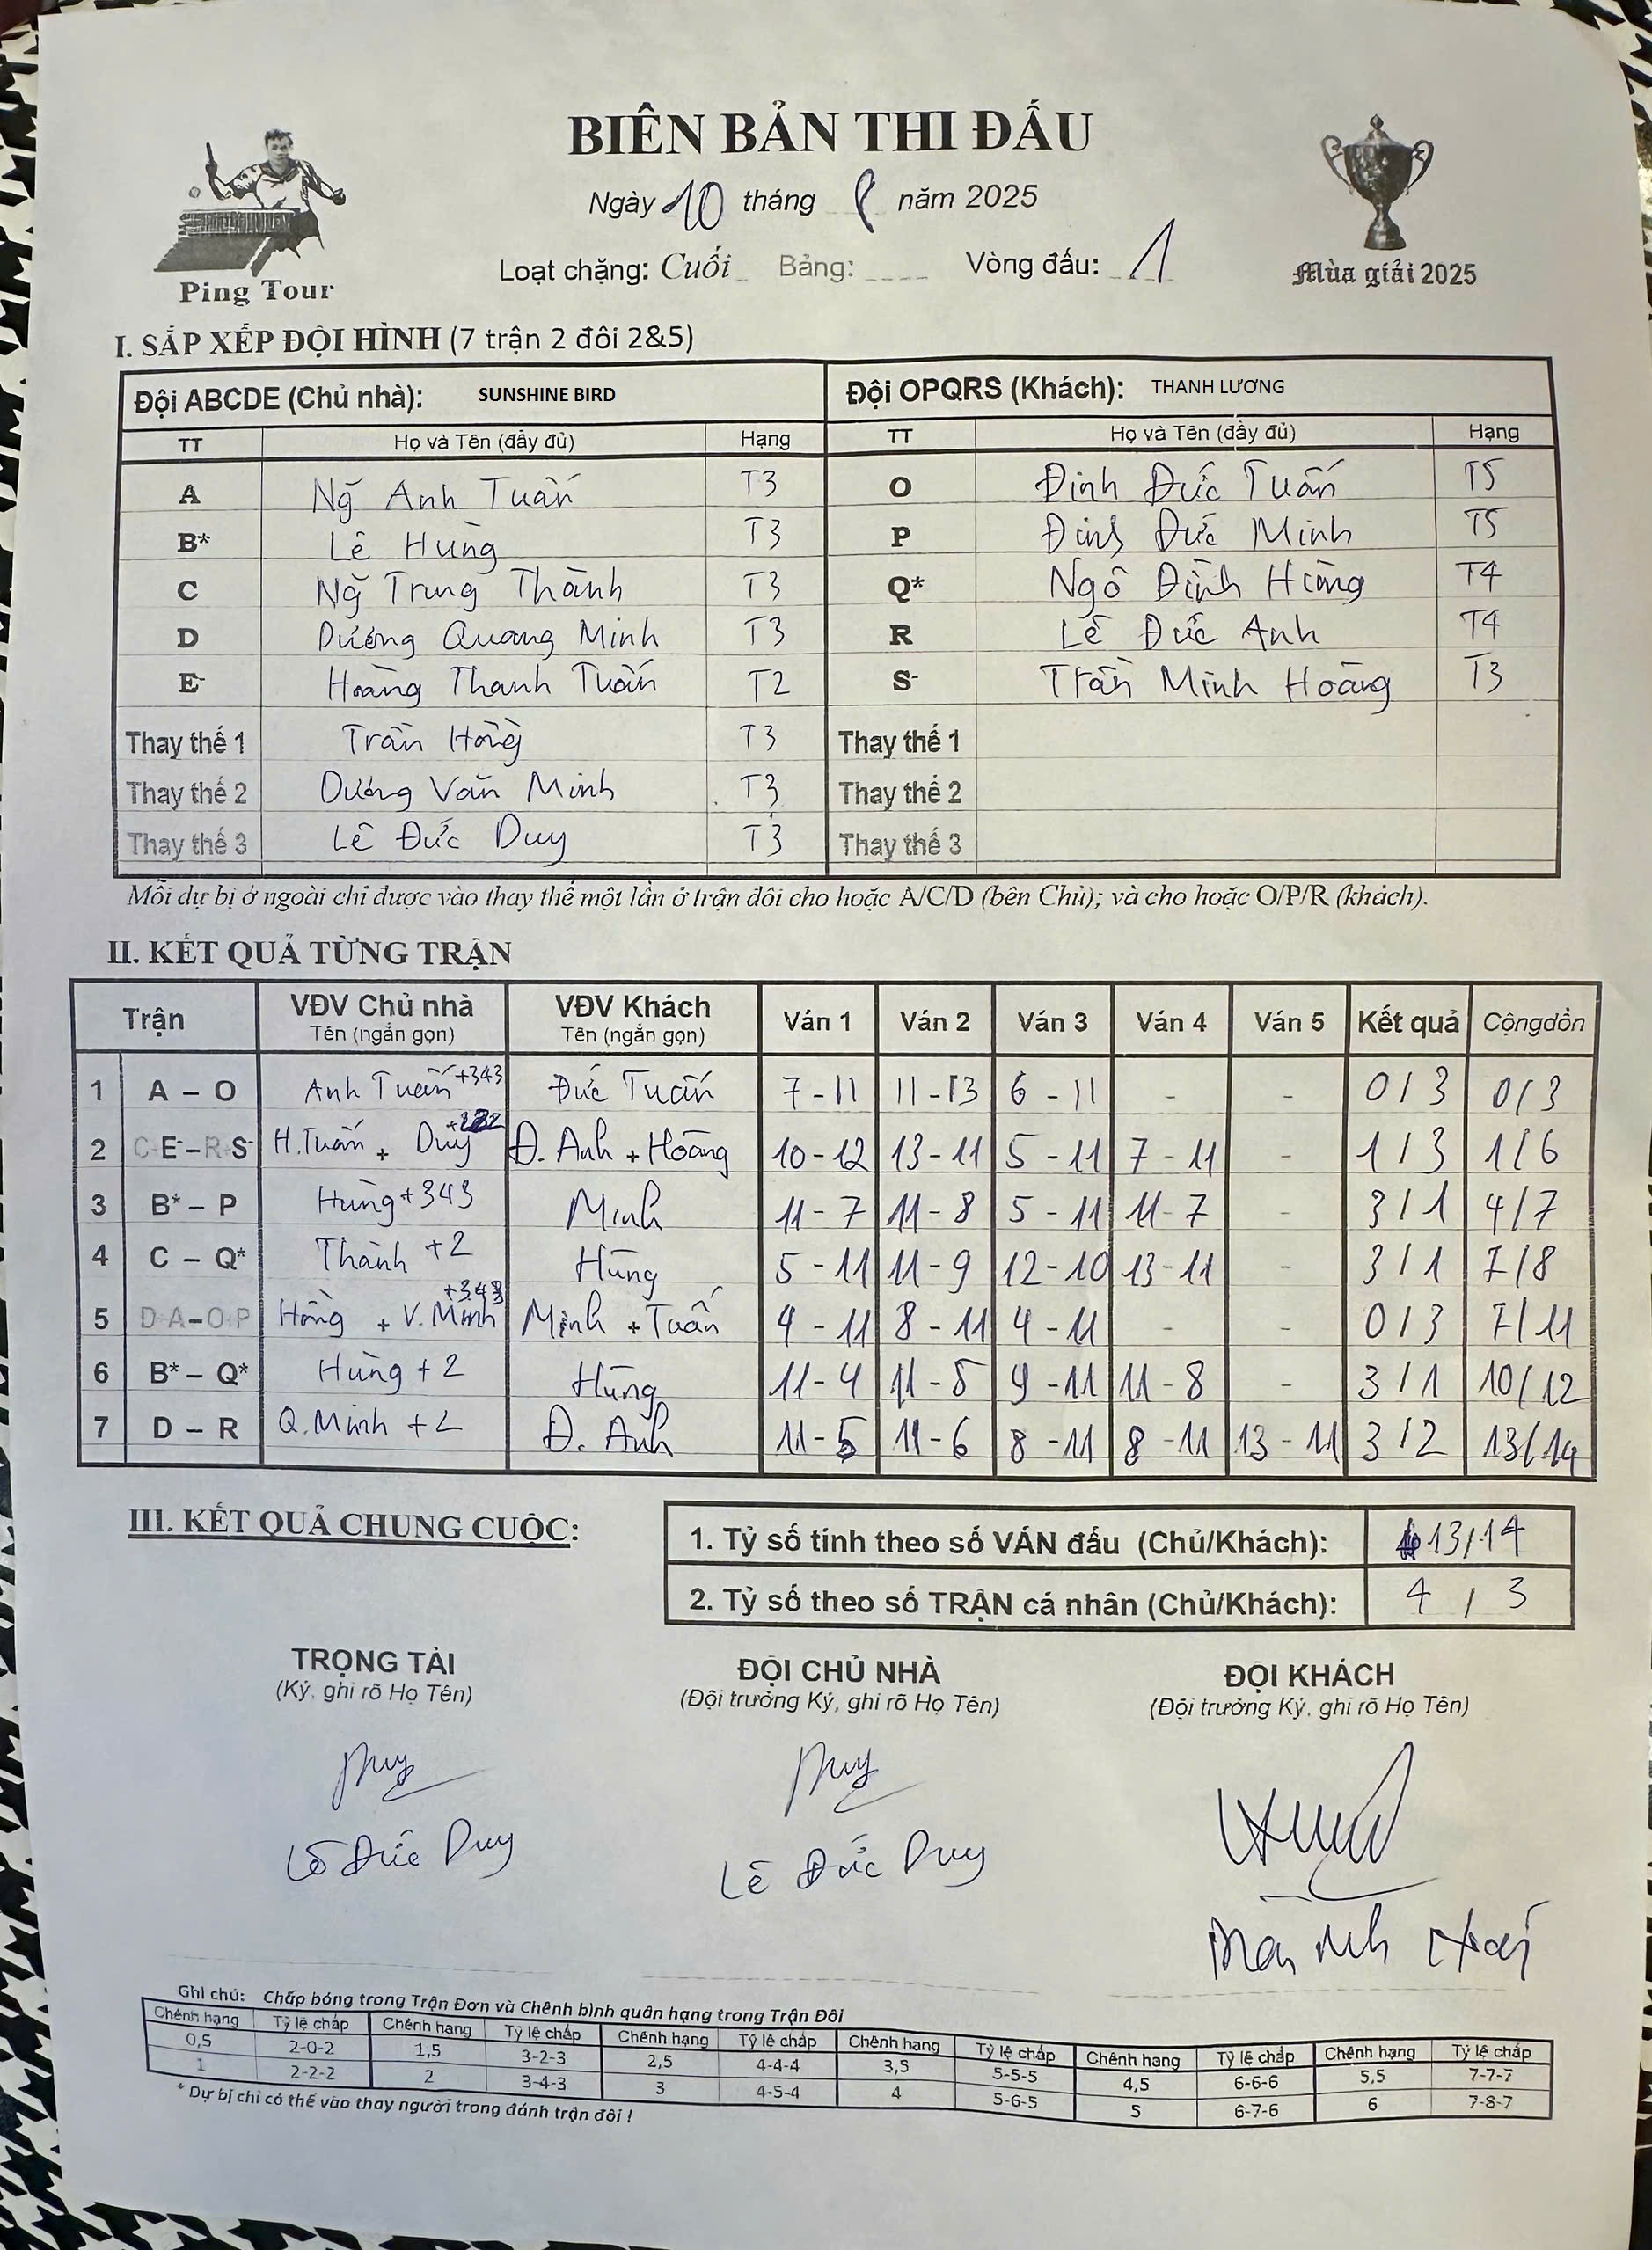 BIÊN BẢN THI ĐẤU
Ngày 10 tháng 8 năm 2025
Loạt chặng: Cuối Bảng: ____ Vòng đấu: 1
Ping Tour
Mùa giải 2025
I. SẮP XẾP ĐỘI HÌNH (7 trận 2 đôi 2&5)
Đội ABCDE (Chủ nhà): SUNSHINE BIRD Đội OPQRS (Khách): THANH LƯƠNG
TT Họ và Tên (đầy đủ) Hạng TT Họ và Tên (đầy đủ) Hạng
A Ng̃ Anh Tuấn T3 O Đinh Đức Tuấn T5
B* Lê Hùng T3 P Đinh Đức Minh T5
C Ng̃ Trung Thành T3 Q* Ngô Đình Hùng T4
D Dương Quang Minh T3 R Lê Đức Anh T4
E- Hoàng Thanh Tuấn T2 S- Trần Minh Hoàng T3
Thay thế 1 Trần Hồng T3 Thay thế 1
Thay thế 2 Dương Văn Minh T3 Thay thế 2
Thay thế 3 Lê Đức Duy T3 Thay thế 3
Mỗi dự bị ở ngoài chỉ được vào thay thế một lần ở trận đôi cho hoặc A/C/D (bên Chủ); và cho hoặc O/P/R (khách).
II. KẾT QUẢ TỪNG TRẬN
Trận VĐV Chủ nhà VĐV Khách Ván 1 Ván 2 Ván 3 Ván 4 Ván 5 Kết quả Cộngdồn
Tên (ngắn gọn) Tên (ngắn gọn)
1 A – O Anh Tuấn +343 Đức Tuấn 7 - 11 11 - 13 6 - 11 - - 0 / 3 0 / 3
2 C+E- – R+S- H.Tuấn + Duy +222 Đ. Anh + Hoàng 10 - 12 13 - 11 5 - 11 7 - 11 - 1 / 3 1 / 6
3 B* – P Hùng +343 Minh 11 - 7 11 - 8 5 - 11 11 - 7 - 3 / 1 4 / 7
4 C – Q* Thành +2 Hùng 5 - 11 11 - 9 12 - 10 13 - 11 - 3 / 1 7 / 8
5 D+A – O+P Hồng + V. Minh +343 Minh + Tuấn 4 - 11 8 - 11 4 - 11 - - 0 / 3 7 / 11
6 B* – Q* Hùng + 2 Hùng 11 - 4 11 - 5 9 - 11 11 - 8 - 3 / 1 10 / 12
7 D – R Q.Minh + 2 Đ. Anh 11 - 5 11 - 6 8 - 11 8 - 11 13 - 11 3 / 2 13 / 14
III. KẾT QUẢ CHUNG CUỘC:
1. Tỷ số tính theo số VÁN đấu (Chủ/Khách): 13/14
2. Tỷ số theo số TRẬN cá nhân (Chủ/Khách): 4 / 3
TRỌNG TÀI ĐỘI CHỦ NHÀ ĐỘI KHÁCH
(Ký, ghi rõ Họ Tên) (Đội trưởng Ký, ghi rõ Họ Tên) (Đội trưởng Ký, ghi rõ Họ Tên)
Duy Duy
Lê Đức Duy Lê Đức Duy
Ghi chú: Chấp bóng trong Trận Đơn và Chênh bình quân hạng trong Trận Đôi
Chênh hạng Tỷ lệ chấp Chênh hạng Tỷ lệ chấp Chênh hạng Tỷ lệ chấp Chênh hạng Tỷ lệ chấp Chênh hạng Tỷ lệ chấp Chênh hạng Tỷ lệ chấp
0,5 2-0-2 1,5 3-2-3 2,5 4-4-4 3,5 5-5-5 4,5 6-6-6 5,5 7-7-7
1 2-2-2 2 3-4-3 3 4-5-4 4 5-6-5 5 6-7-6 6 7-8-7
* Dự bị chỉ có thể vào thay người trong đánh trận đôi !